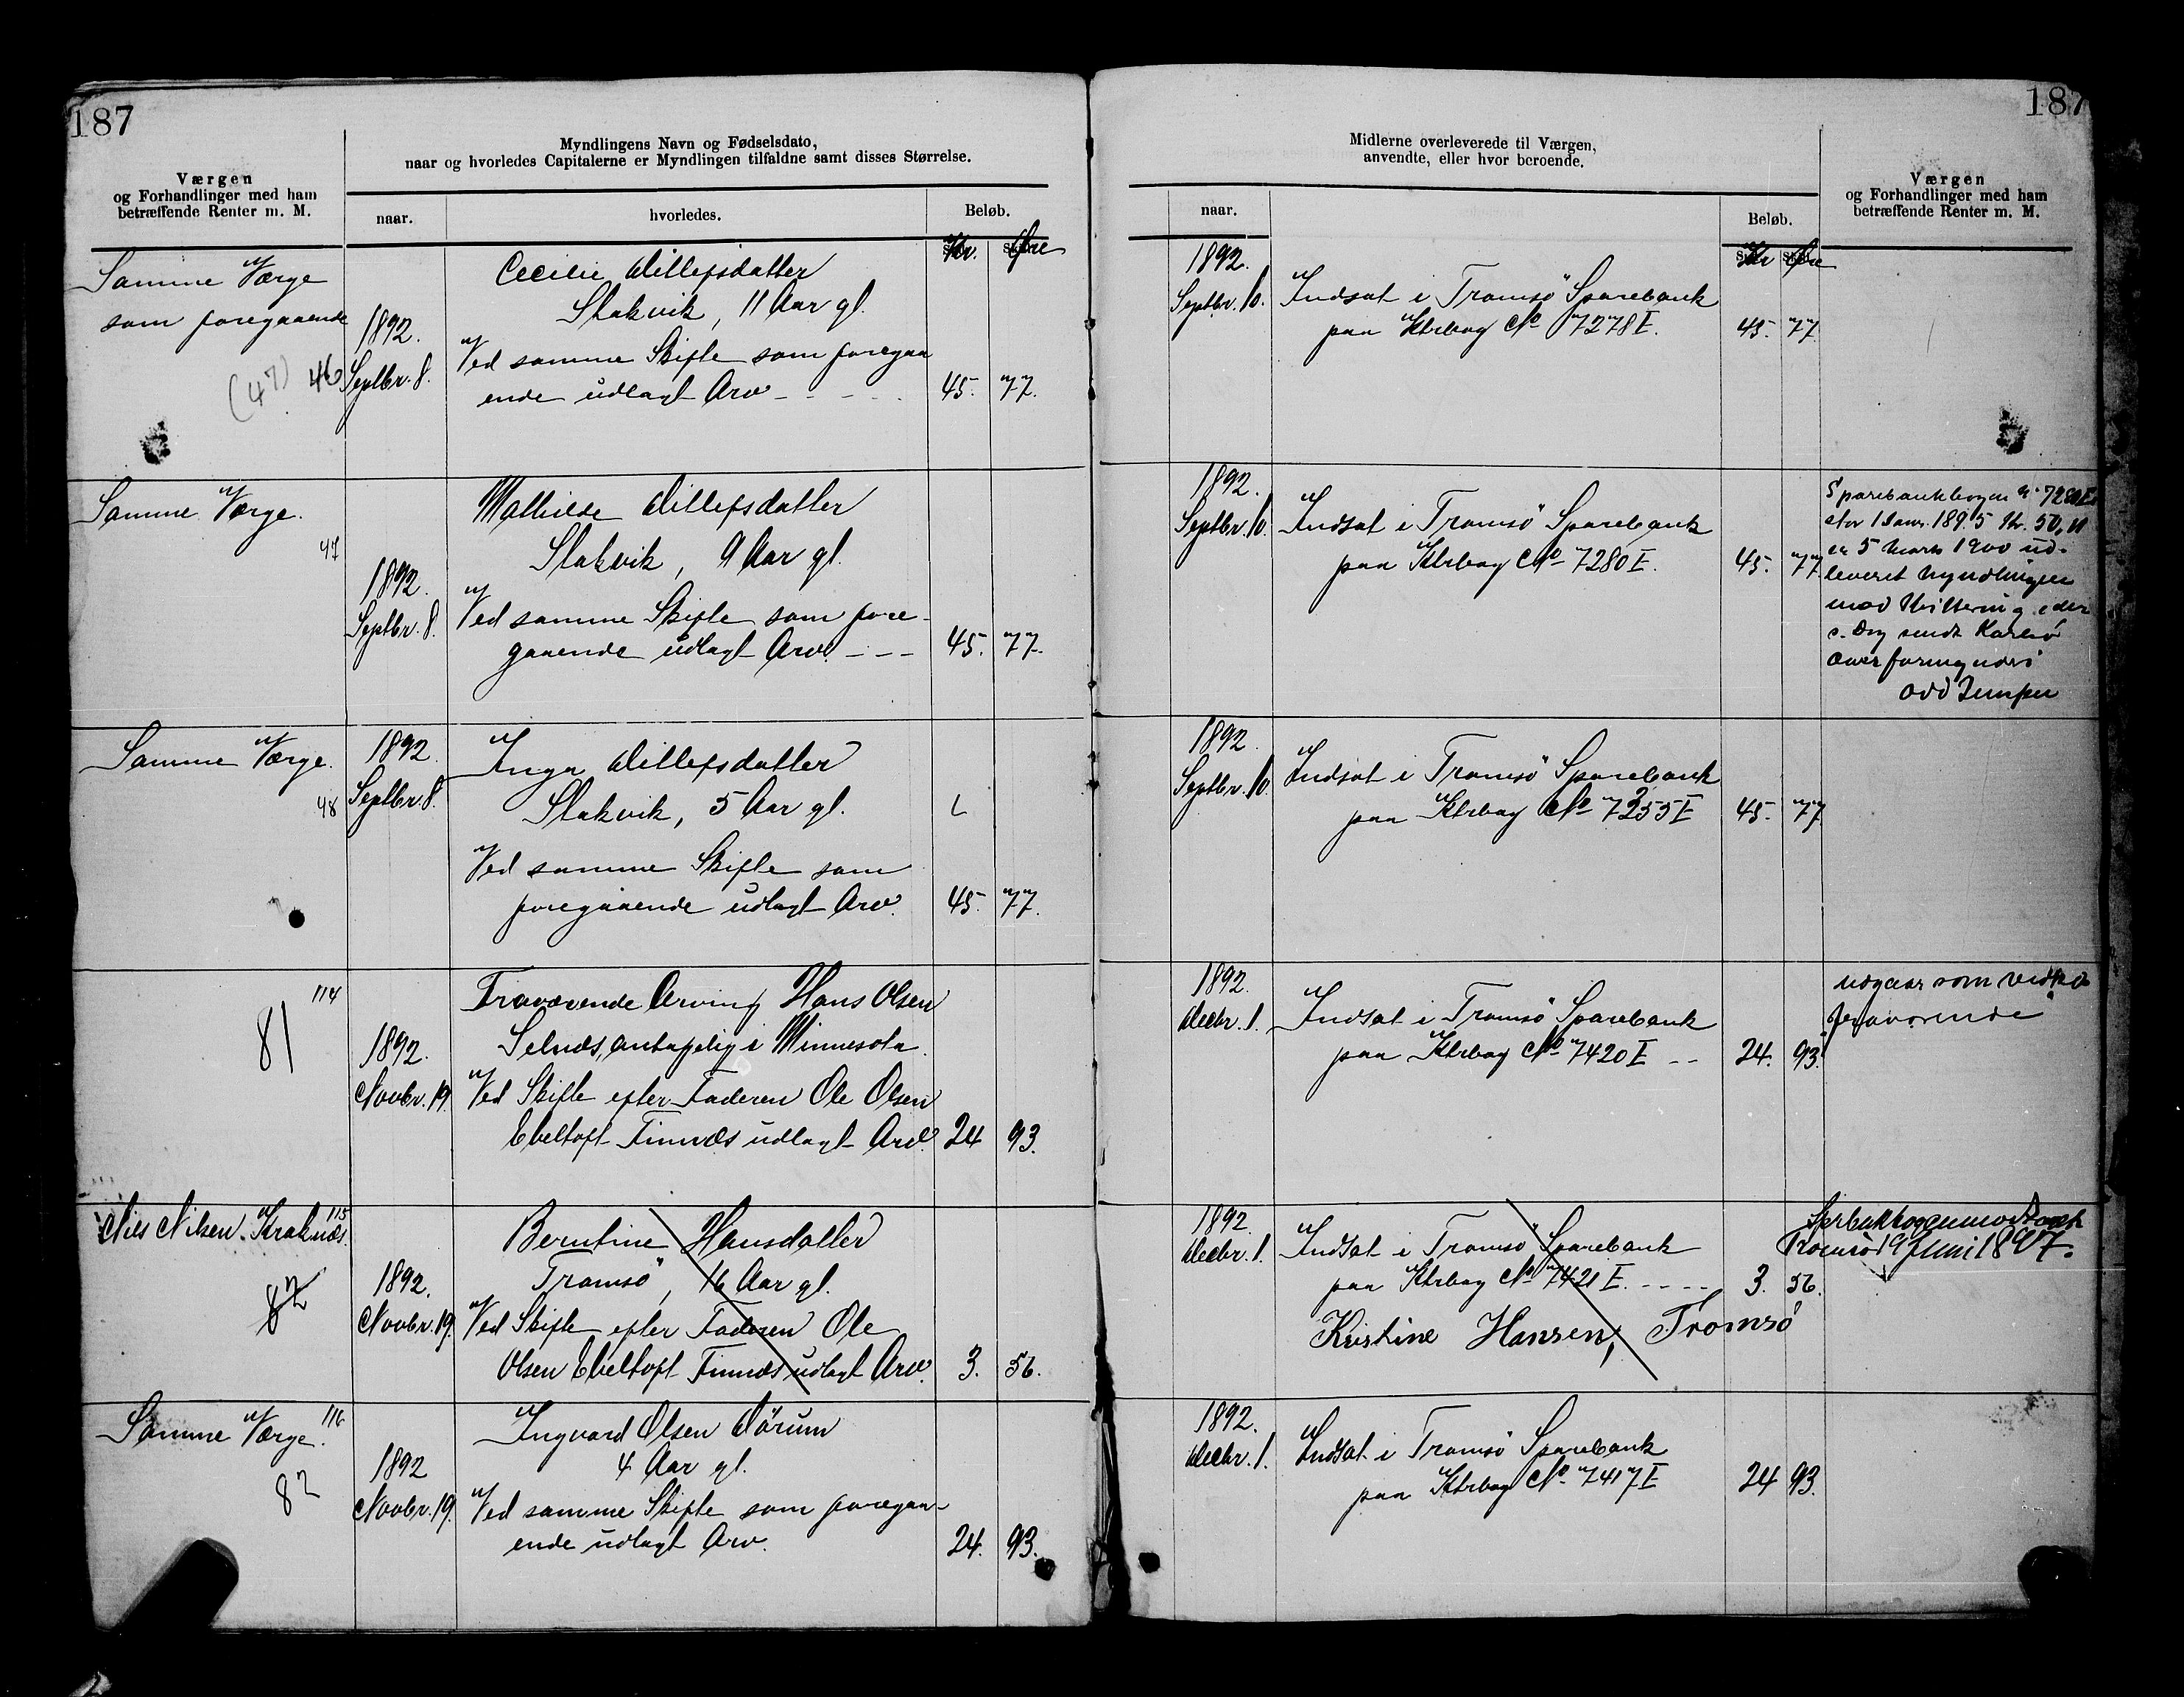 187
187
Værgen
og Forhandlinger med ham
betræffende Renter m. M.
Myndlingens Navn og Fødselsdato,
naar og hvorledes Capitalerne er Myndlingen tilfaldne samt disses Størrelse.
naar.
hvorledes.
Beløb.
Kr. Øre
Midlerne overleverede til Værgen,
anvendte, eller hvor beroende.
naar.
Beløb.
Kr Øre
Værgen
og Forhandlinger med ham
betræffende Renter m. M.
Samme Værge
som foregaaende
(47) 46
1892.
Septbr. 8.
Cecilie Dillefsdatter
Slakvik, 11 Aar gl.
Ved samme Skifte som foregaa
ende udlagt Arv - - - - 45. 77.
1892.
Septbr. 10.
Indsat i Tromsö Sparebank
paa Ktrbog No 7278 I. 45. 77
Samme Værge.
47
1892.
Septbr. 8.
Mathilde Dillefsdatter
Slakvik, 9 Aar gl.
Ved samme Skifte som fore-
gaaende udlagt Arv. - - - 45. 77.
1892.
Septbr. 10.
Indsat i Tromsö Sparebank
paa Ktrbog No 7280 I. 45. 77
Sparebankbogen No 7280 I
stor 1 Janr. 1895 Kr. 50,11
er 5 Marts 1900 ud-
leveret Myndlingen
mod Kvittering eder
s. Dag sendt Karlsö
Overformynderi
Samme Værge.
48
1892.
Septbr. 8.
Inga Dillefsdatter
Slakvik, 5 Aar gl.
Ved samme Skifte som
foregaaende udlagt Arv. 45. 77.
1892
Septbr. 10.
Indsat i Tromsö Sparebank
paa Ktrbog No 7255 I 45. 77
114
81
1892.
Novbr. 19.
Fraværende Arving Hans Olsen
Selnæs, antagelig i Minnesota.
Ved Skifte efter Faderen Ole Olsen
Ebeltoft Finnæs udlagt Arv. 24 93.
1892.
Decbr. 1.
Indsat i Tromsö Sparebank
paa Ktrbog No 7420 I - - 24. 93.
udgaar som vedk.
fraværende
Nils Nilsen Kraknæs.
115
82
1892.
Novbr. 19.
Berntine Hansdatter
Tromsö, 16 Aar gl.
Ved Skifte efter Faderen Ole
Olsen Ebeltoft Finnæs udlagt Arv. 3. 56.
1892.
Decbr. 1.
Indsat i Tromsö Sparebank
paa Ktrbog No 7421 I. - - - - 3. 56.
Kristine Hansen, Tromsö
Sparbankbogen modtaget
Tromsö 19 Juni 1897.
Samme Værge.
116
82
1892
Novbr. 19.
Ingvard Olsen Dörum
4 Aar gl.
Ved samme Skifte som foregaa-
ende udlagt Arv. 24. 93.
1892.
Decbr. 1.
Indsat i Tromsö Sparebank
paa Ktrbog No 7417 I 24 93.